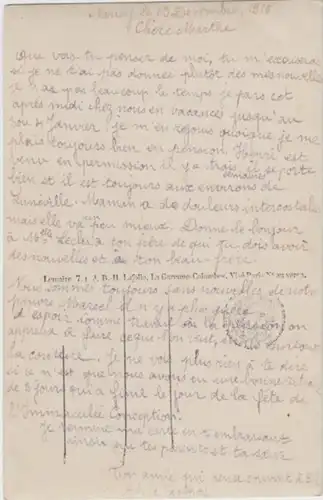 Nancy le 19 Décembre, 1916
Chère Marthe
Que vas tu penser de moi, tu m'excuseras
si je ne t'ai pas donnée plutôt des mes nouvelles
je n'ai pas beaucoup le temps je pars cet
après midi chez nous en vacances jusqu'au
4 Janvier je m'en réjouis quoique je me
plais toujours bien en pension Henri est
venu en permission il y a trois semaines il se porte
bien et il est toujours aux environs de
Lunéville. Maman a de douleurs intercostale
mais elle va un peu mieux. Donne le bonjour
à ton père de qui tu dois avoir
des nouvelles et à ton beau-frère.
Nous sommes toujours sans nouvelles de notre
pauvre Marcel il n'y a plus guère
d'espoir comme travail on
apprend à faire ce que l'on veut,
la couture. Je ne vois plus rien à te dire
si ce n'est que nous avons eu une bonne retraite
de 3 jours qui a fini le jour de la fête de
l'Immaculée Conception.
Je termine ma carte en t'embrassant
ainsi que tes parents et ta sœur
Ton amie qui pense souvent à